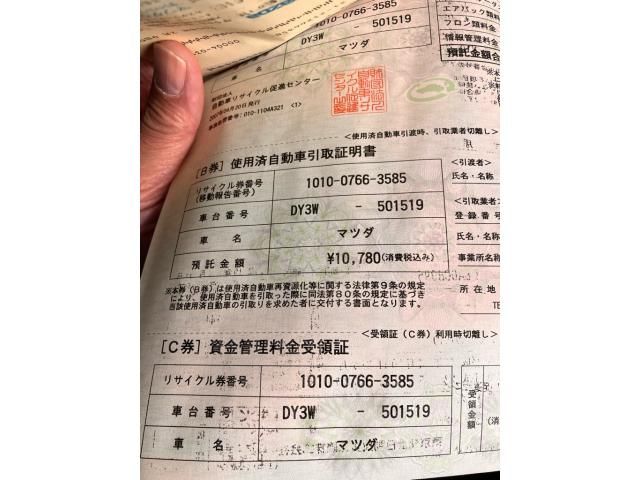 1010-0766-3585
エアバッグ類料金
DY3W - 501519
フロン類料金
情報管理料金
車 名 マツダ
預託金額合
自動車リサイクル促進センター
2007年04月20日発行
010-1104A321 <1>
<使用済自動車引渡時、引取業者切離し>
[B券] 使用済自動車引取証明書
<引渡者>
リサイクル券番号
(移動報告番号)
1010-0766-3585
氏名・名称
車台番号 DY3W - 501519
<引取業者>
登録番号
車 名 マツダ
氏名・名称
預託金額 ¥10,780(消費税込み)
事業所名称
※本券(B券)は使用済自動車再資源化等に関する法律第9条の規定
により、使用済自動車を引取った際に同法第80条の規定に基づき
当該使用済自動車の引取りを求めた者に交付する書面となります。
所在地
TE
<受領証(C券)利用時切離し>
[C券] 資金管理料金受領証
リサイクル券番号 1010-0766-3585
受領金額
車台番号 DY3W - 501519
(消
車 名 マツダ